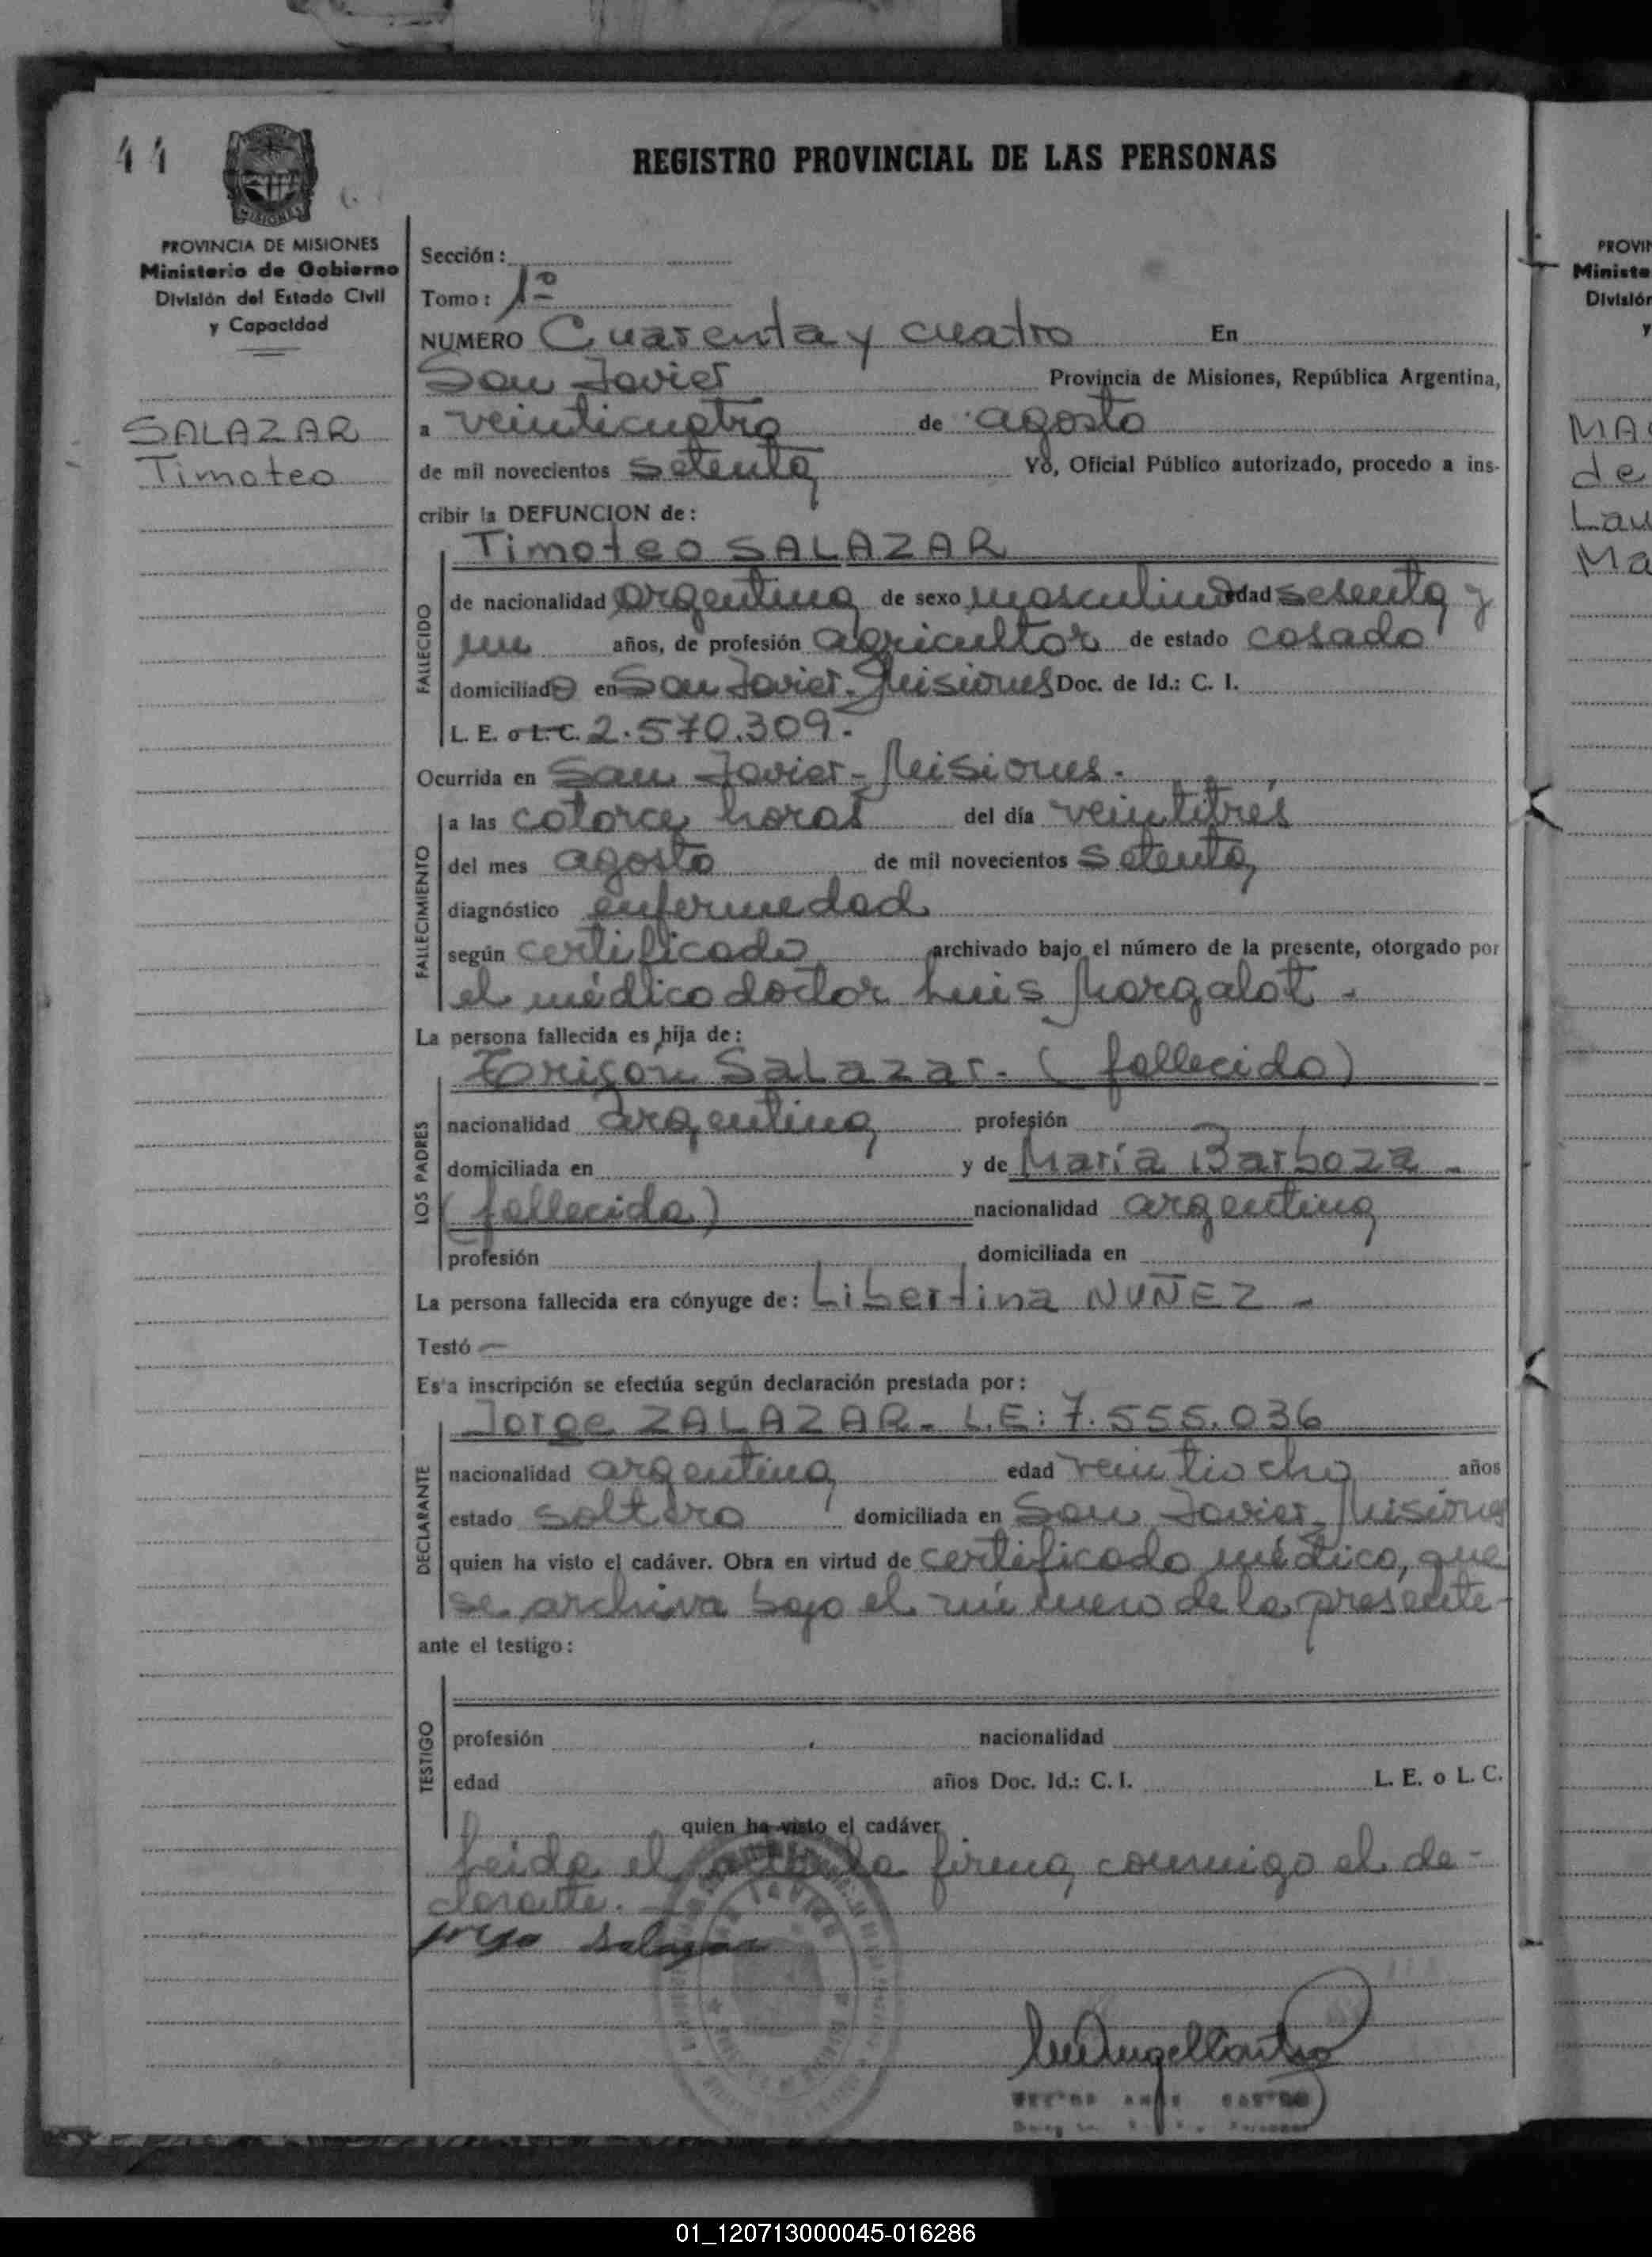 44
REGISTRO PROVINCIAL DE LAS PERSONAS
MISIONES
PROVINCIA DE MISIONES
Ministerio de Gobierno
División del Estado Civil
y Capacidad
SALAZAR
Timoteo
Sección:
Tomo: 1º
NUMERO Cuarenta y cuatro En
San Javier Provincia de Misiones, República Argentina,
a veinticuatro de agosto
de mil novecientos setenta Yo, Oficial Público autorizado, procedo a ins-
cribir la DEFUNCION de:
Timoteo SALAZAR
FALLECIDO
de nacionalidad argentina de sexo masculino edad sesenta y
un años, de profesión agricultor de estado casado
domiciliado en San Javier-Misiones Doc. de Id.: C. I.
L. E. o L.C. 2.570.309.
Ocurrida en San Javier-Misiones.
FALLECIMIENTO
a las catorce horas del día veintitrés
del mes agosto de mil novecientos setenta
diagnóstico enfermedad
según certificado archivado bajo el número de la presente, otorgado por
el médico doctor Luis Margalot.
La persona fallecida es hija de:
Salazar. (fallecido)
LOS PADRES
nacionalidad argentina profesión
domiciliada en y de María Barboza -
(fallecida) nacionalidad argentina
profesión domiciliada en
La persona fallecida era cónyuge de: Libertina NUÑEZ -
Testó —
Esta inscripción se efectúa según declaración prestada por:
Jorge ZALAZAR- L.E: 7.555.036
DECLARANTE
nacionalidad argentina edad veintiocho años
estado soltero domiciliada en San Javier-Misiones
quien ha visto el cadáver. Obra en virtud de certificado médico, que
se archiva bajo el número de la presente-
ante el testigo:
TESTIGO
profesión nacionalidad
edad años Doc. Id.: C. I. L. E. o L. C.
quien ha visto el cadáver
Leida el acta la firma conmigo el de-
clarante.
Jorge Salazar
PROVIN
Ministe
División
y
MA
de
Lau
Ma
01_120713000045-016286